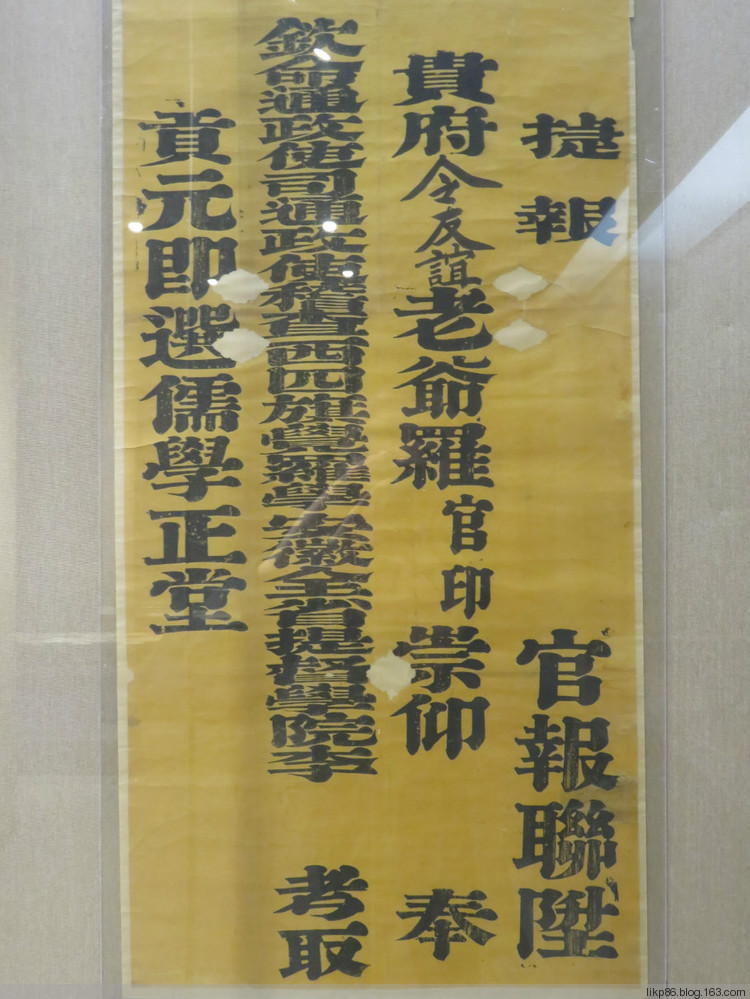 捷報 官報聯陞
貴府令友誼老爺羅官印崇仰 奉
欽命通政使司通政使稽查西四旗覺羅學安徽全省提督學院李 考取
貢元即選儒學正堂
likp86.blog.163.com